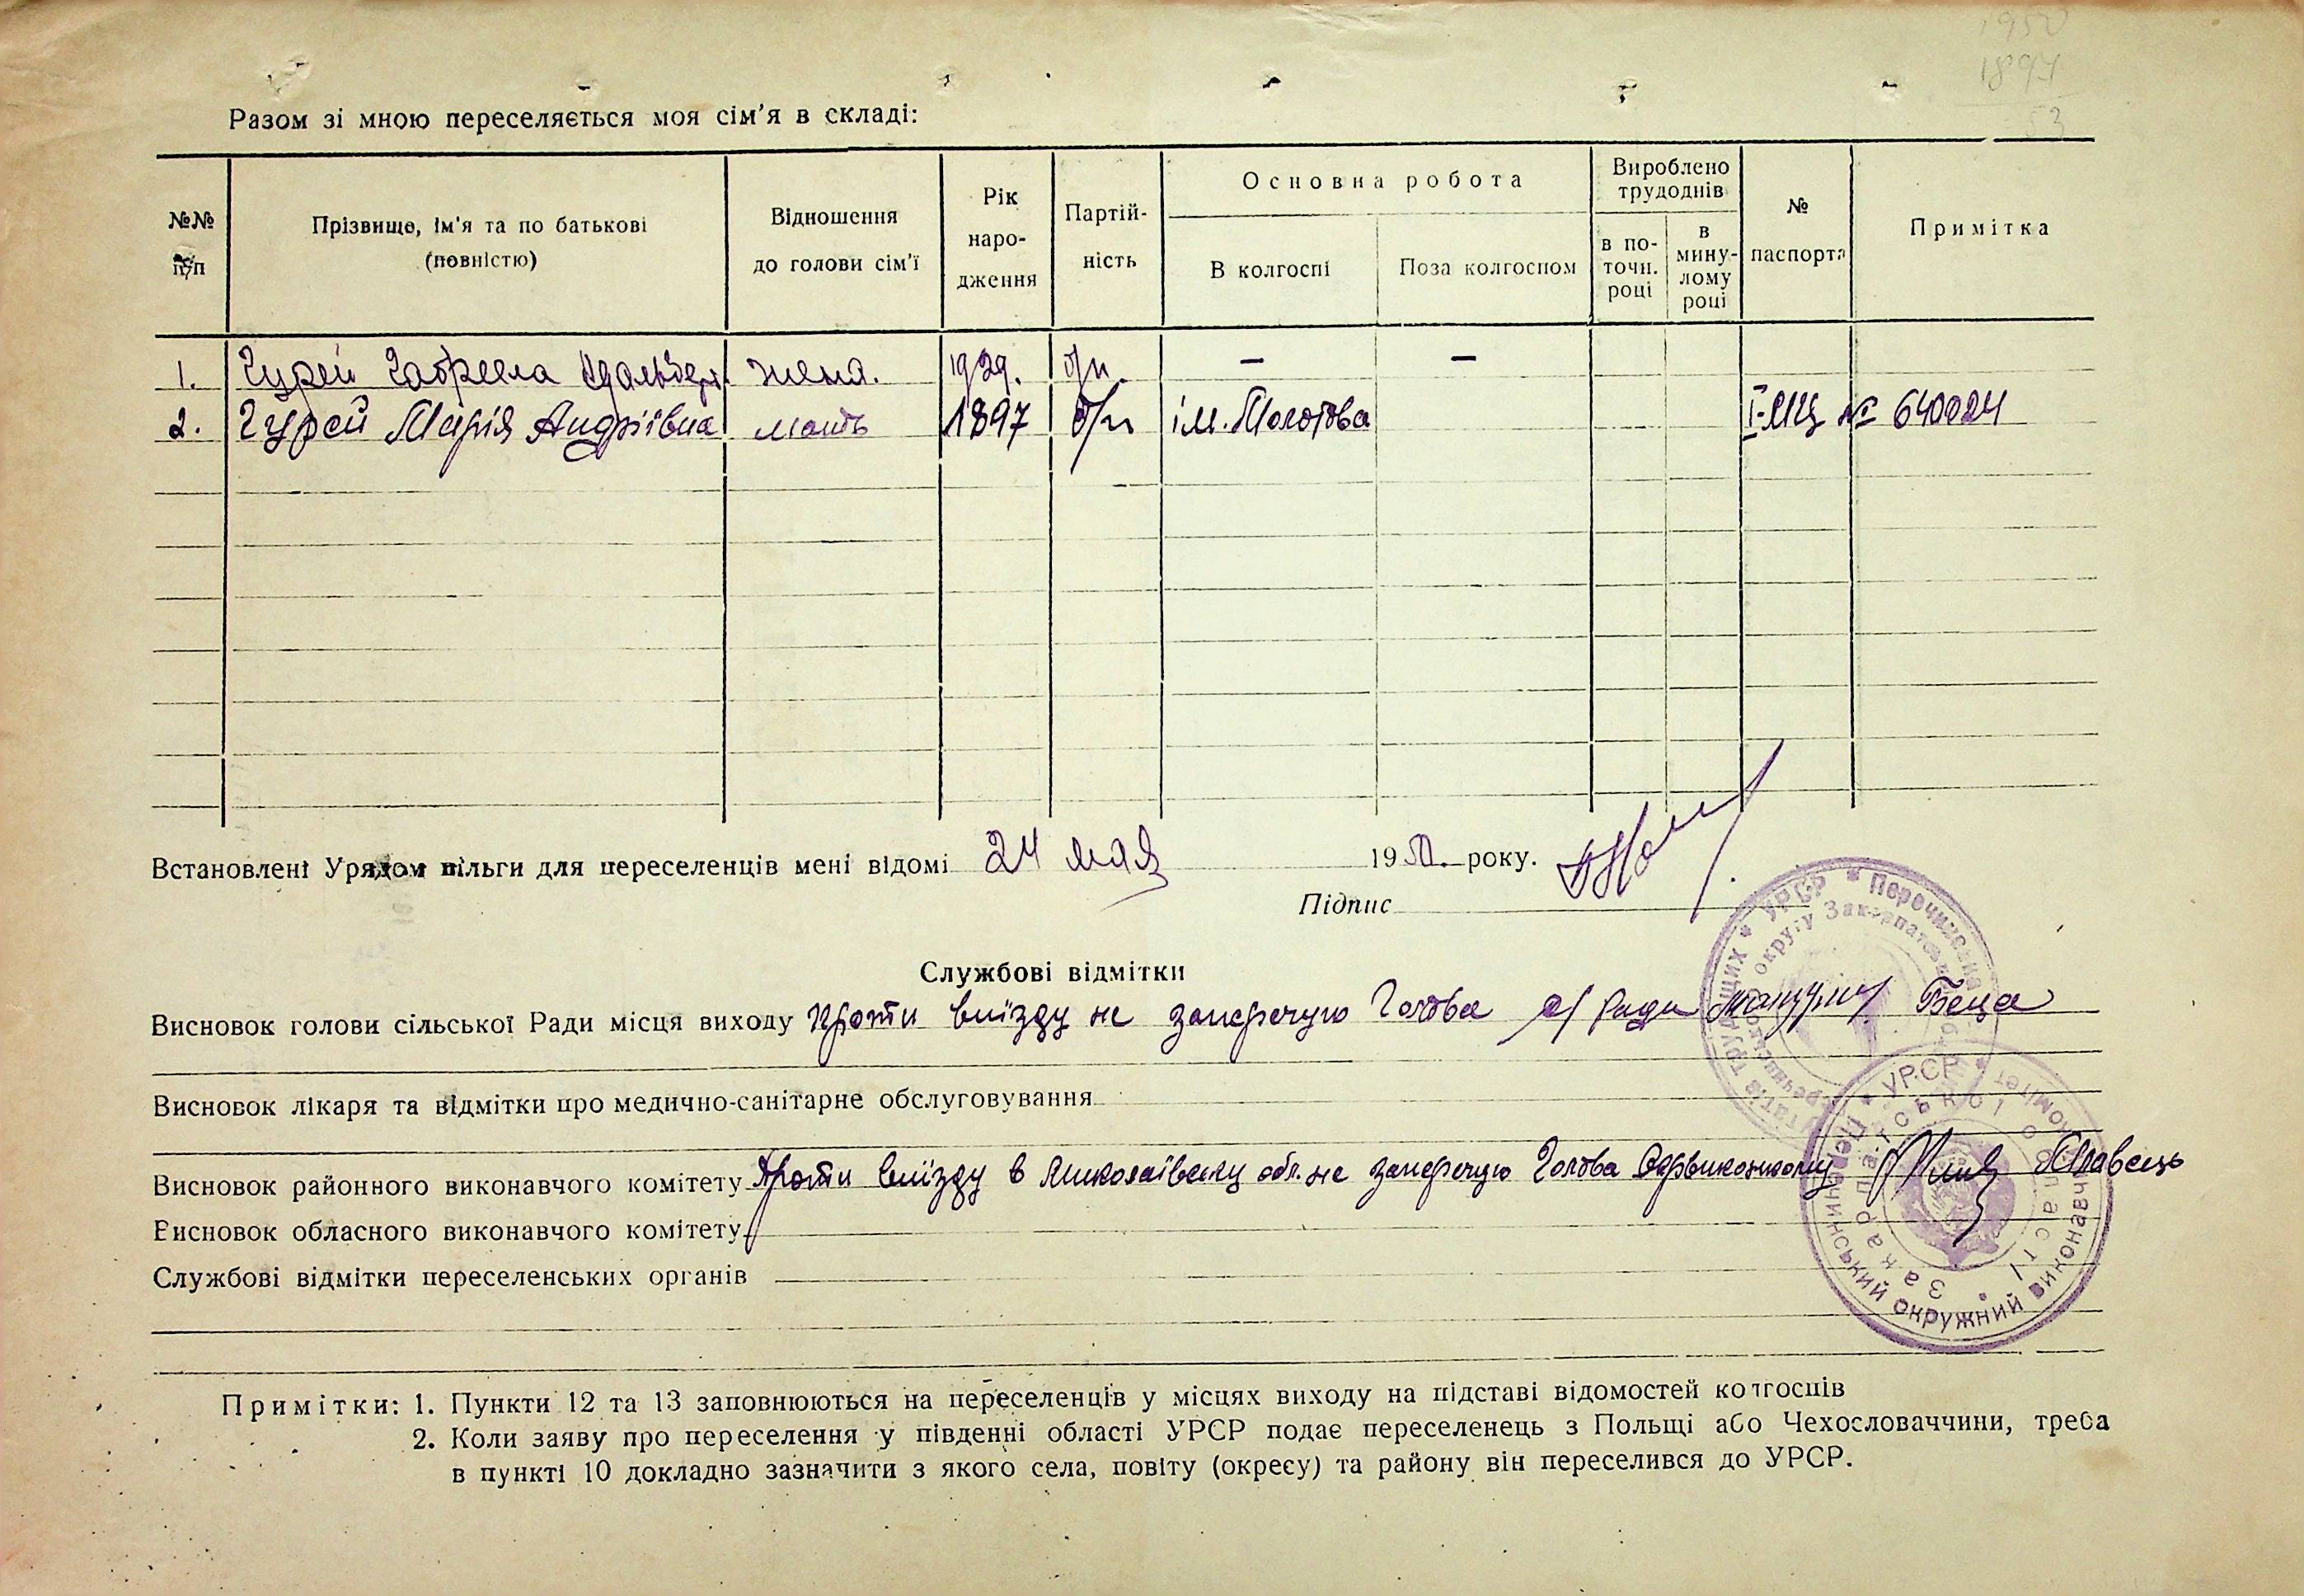 1950
1897
53
Разом зі мною переселяється моя сім'я в складі:
№№ п/п
Прізвище, ім'я та по батькові (повністю)
Відношення до голови сім'ї
Рік народження
Партійність
Основна робота
В колгоспі
Поза колгоспом
Вироблено трудоднів
в поточн. році
в минулому році
№ паспорта
Примітка
1. Гурей Габреела жена. 1929. б/п. — —
2. Гурей Марія Андріївна мать 1897 б/п ім. Молотова І-МЦ № 640024
Встановлені Урядом пільги для переселенців мені відомі 24 мая 1950. року.
Підпис
Службові відмітки
Висновок голови сільської Ради місця виходу Проти виїзду не заперечую Голова с/ Ради Беца
Висновок лікаря та відмітки про медично-санітарне обслуговування
Висновок районного виконавчого комітету Проти виїзду в Миколаївську обл. не заперечую Голова Окрвиконкому Плавець
Висновок обласного виконавчого комітету
Службові відмітки переселенських органів
УРСР * Перечинська
округу Закарпатської
УРСР * Перечинський окружний виконавчий комітет *
Закарпатської області
Примітки: 1. Пункти 12 та 13 заповнюються на переселенців у місцях виходу на підставі відомостей колгоспів
2. Коли заяву про переселення у південні області УРСР подає переселенець з Польщі або Чехословаччини, треба
в пункті 10 докладно зазначити з якого села, повіту (окресу) та району він переселився до УРСР.